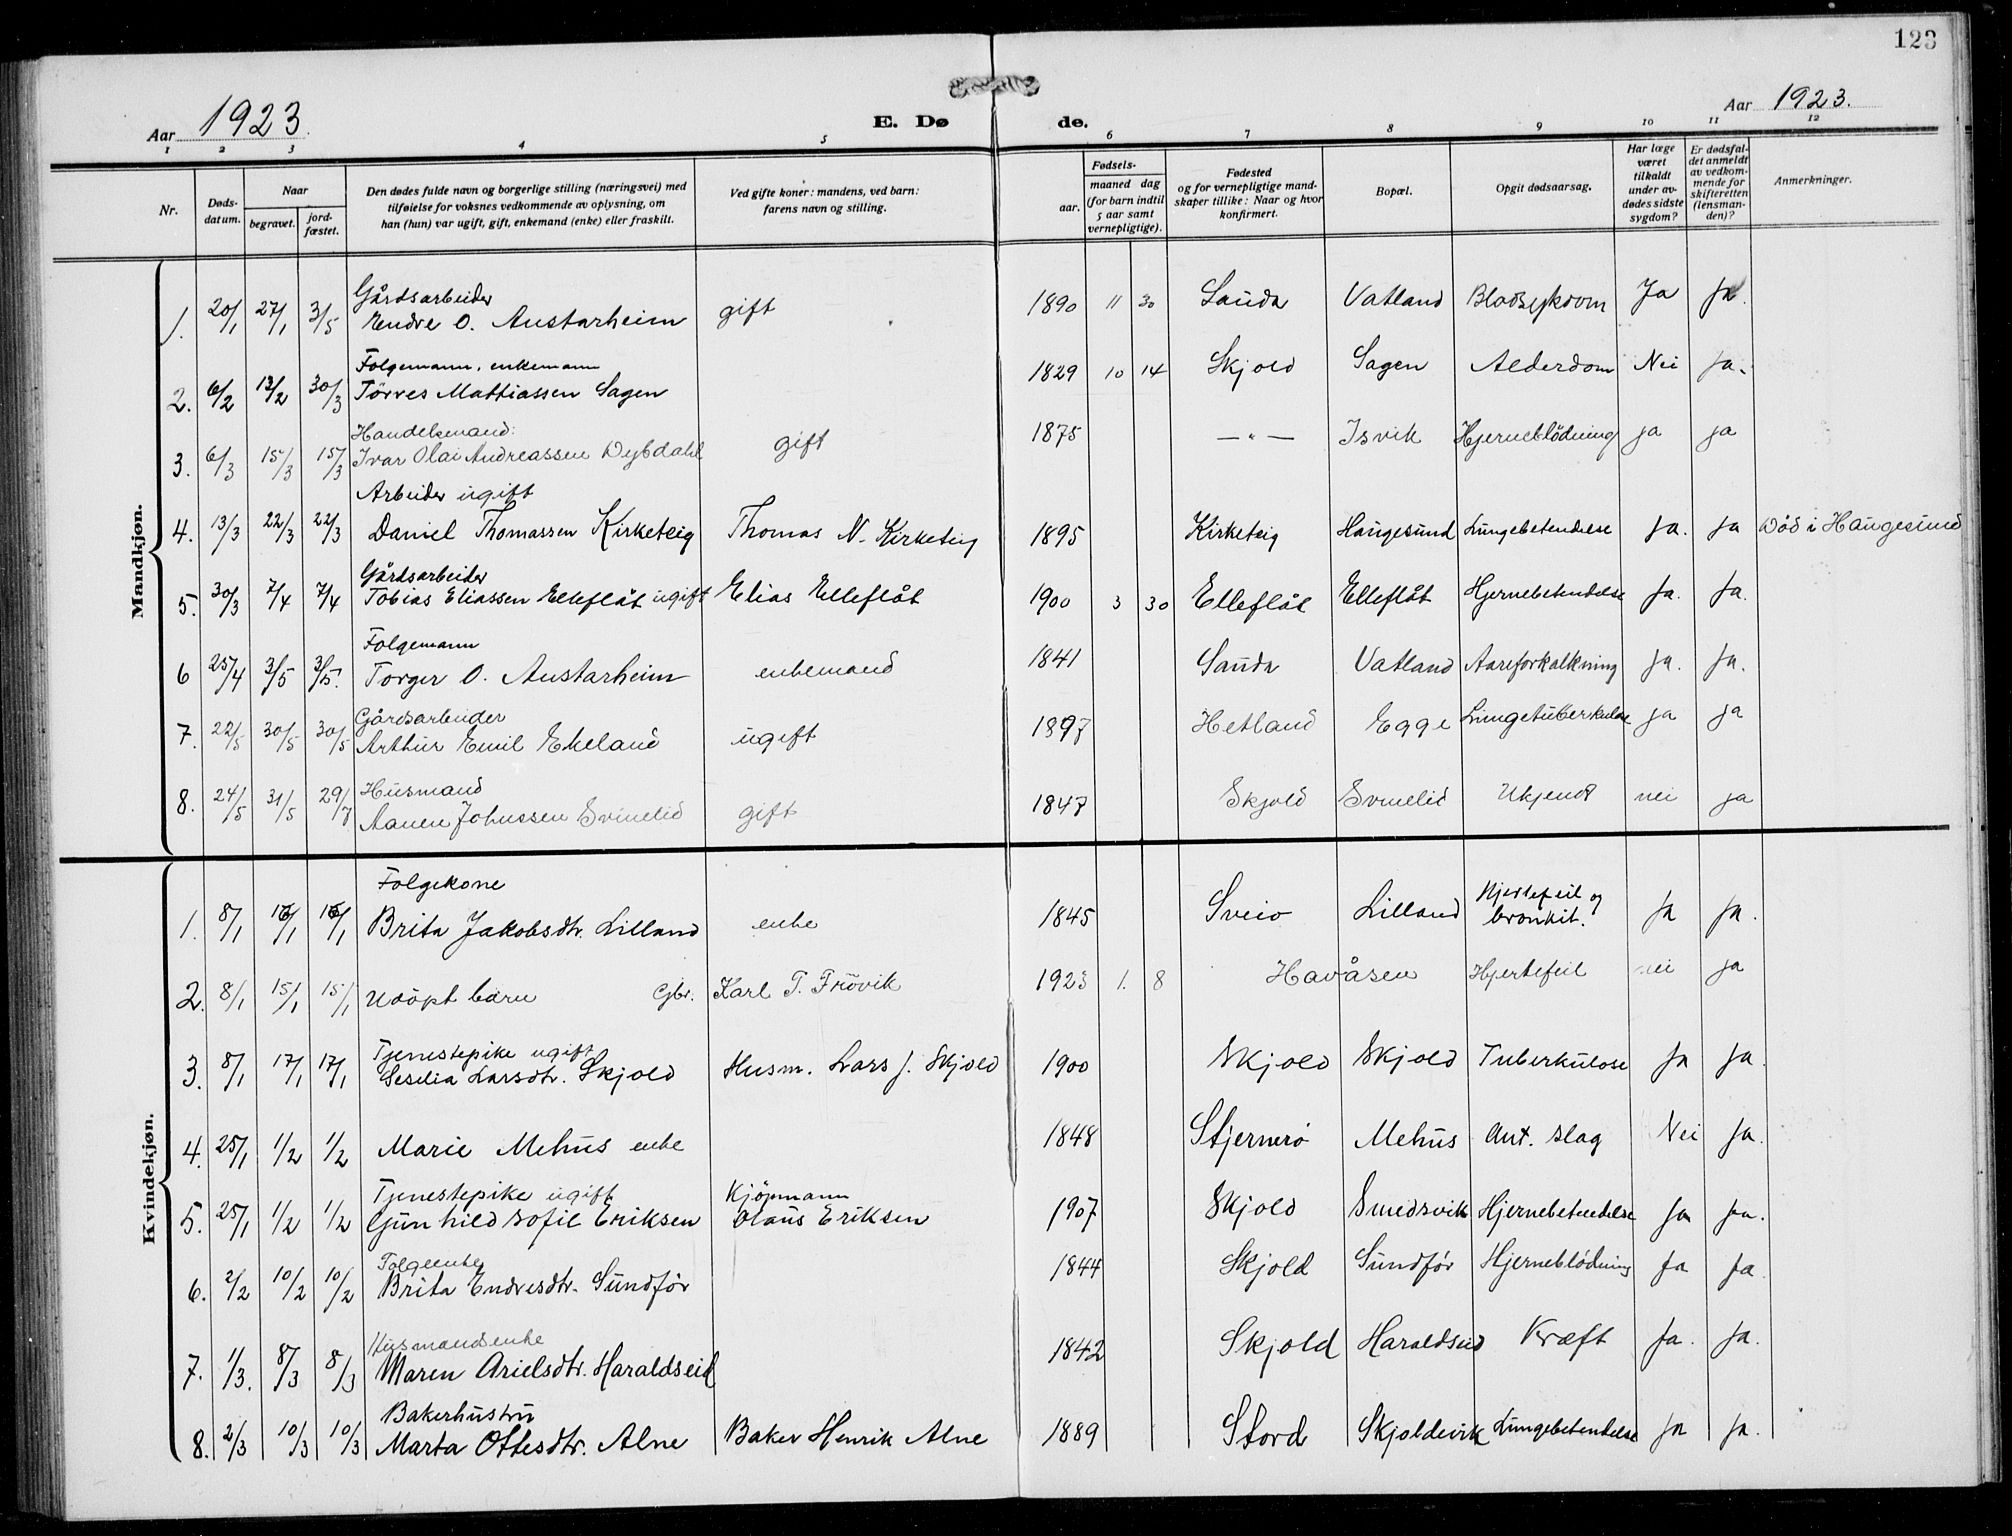 123
Aar 1923.
E. Døde.
Aar 1923.
1 2 3 4 5 6 7 8 9 10 11 12
Nr.
Døds-datum.
Naar
begravet.
jord-fæstet.
Den dødes fulde navn og borgerlige stilling (næringsvei) med
tilføielse for voksnes vedkommende av oplysning, om
han (hun) var ugift, gift, enkemand (enke) eller fraskilt.
Ved gifte koner: mandens, ved barn:
farens navn og stilling.
Fødsels-
aar.
maaned dag
(for barn indtil
5 aar samt
vernepligtige).
Fødested
og for vernepligtige mand-
skaper tillike: Naar og hvor
konfirmert.
Bopæl.
Opgit dødsaarsag.
Har læge
været
tilkaldt
under av-
dødes sidste
sygdom?
Er dødsfal-
det anmeldt
av vedkom-
mende for
skifteretten
(lensman-
den)?
Anmerkninger.
Mandkjøn.
Gårdsarbeider
1. 20/1 27/1 3/5 Endre O. Austarheim gift 1890 11 30 Sauda Vatland Blodsykdom Ja Ja.
Folgemann, enkemann
2. 6/2 13/2 30/3 Törres Mattiassen Sagen 1829 10 14 Skjold Sagen Alderdom Nei Ja.
Handelsmand:
3. 6/3 15/3 15/3 Ivar Olai Andreassen Dybdahl gift 1875 —"— Isvik Hjerneblödning ja ja
Arbeider ugift
4. 13/3 22/3 22/3 Daniel Thomassen Kirketeig Thomas N. Kirketeig 1895 Kirketeig Haugesund Lungebetendelse Ja. Ja Död i Haugesund
Gårdsarbeider
5. 30/3 7/4 7/4 Tobias Eliassen Elleflåt ugift Elias Elleflåt 1900 3 30 Elleflåt Elleflåt Hjernebetendelse Ja. Ja.
Folgemann
6 25/4 3/5 3/5. Torger O. Austarheim enkemand 1841 Sauda Vatland Aareforkalkning Ja. Ja.
Gårdsarbeider
7. 22/5 30/5 30/5 Arthur Emil Ekeland ugift 1897 Hetland Egge Lungetuberkulose ja ja
Husmand
8. 24/5 31/5 29/7 Aanen Johnssen Svinelid gift 1847 Skjold Svinelid Ukjendt nei ja
Kvindekjøn.
Folgekone
1. 8/1 16/1 16/1 Brita Jakobsdtr. Lilland enke 1845 Sveio Lilland Hjertefeil og bronkit. Ja Ja.
2. 8/1 15/1 15/1 Udöpt barn Gbr. Karl T. Frövik 1923 1. 8 Havåsen Hjertefeil nei ja
Tjenestepike ugift
3. 8/1 17/1 17/1 Seselia Larsdtr. Skjold Husm. Lars J. Skjold 1900 Skjold Skjold Tuberkulose Ja Ja.
4. 25/1 1/2 1/2 Marie Mehus enke 1848 Stjernerö Mehus Ant. slag Nei Ja.
Tjenestepike ugift Kjöpmann
5. 25/1 1/2 1/2 Gunhild Sofie Eriksen Olaus Eriksen 1907 Skjold Smedsvik Hjernebetendelse Ja Ja.
Folgeenke
6. 2/2 10/2 10/2 Brita Endresdtr. Sundför 1844 Skjold Sundför Hjerneblödning Ja Ja.
Husmandsenke
7. 1/3. 8/3 8/3 Maren Arielsdtr. Haraldseid 1842 Skjold Haraldseid Kræft Ja. Ja.
Bakerhustru
8. 2/3 10/3 10/3 Marta Ottesdtr. Alne Baker Henrik Alne 1889 Stord Skjoldevik Lungebetendelse Ja Ja.